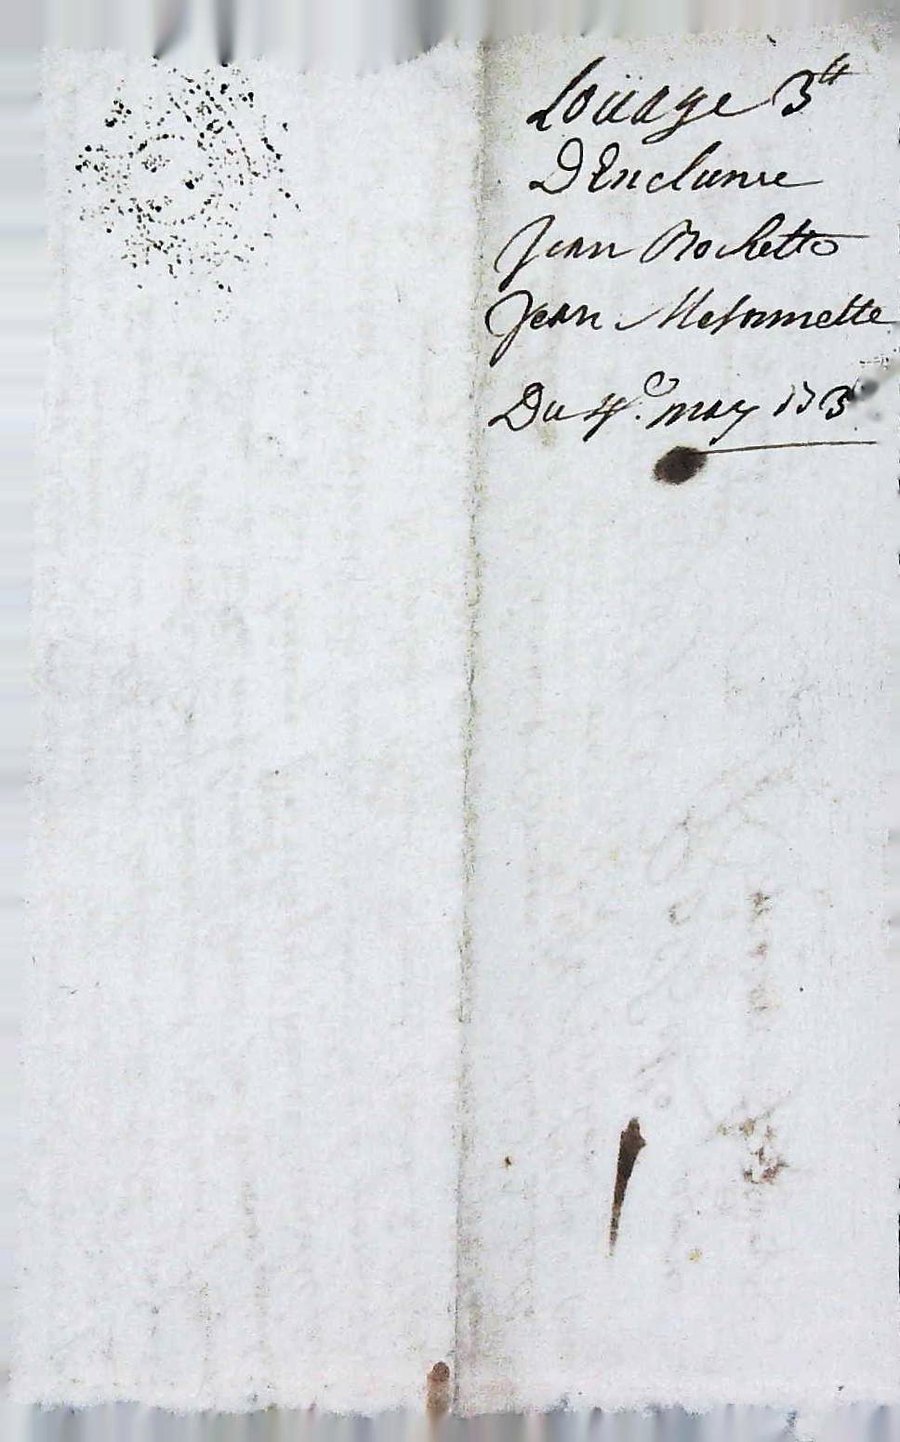 Loüage 3tt
D'Enclume
Jean Rochette
Jean Mesonnette
Du 4e. may 173